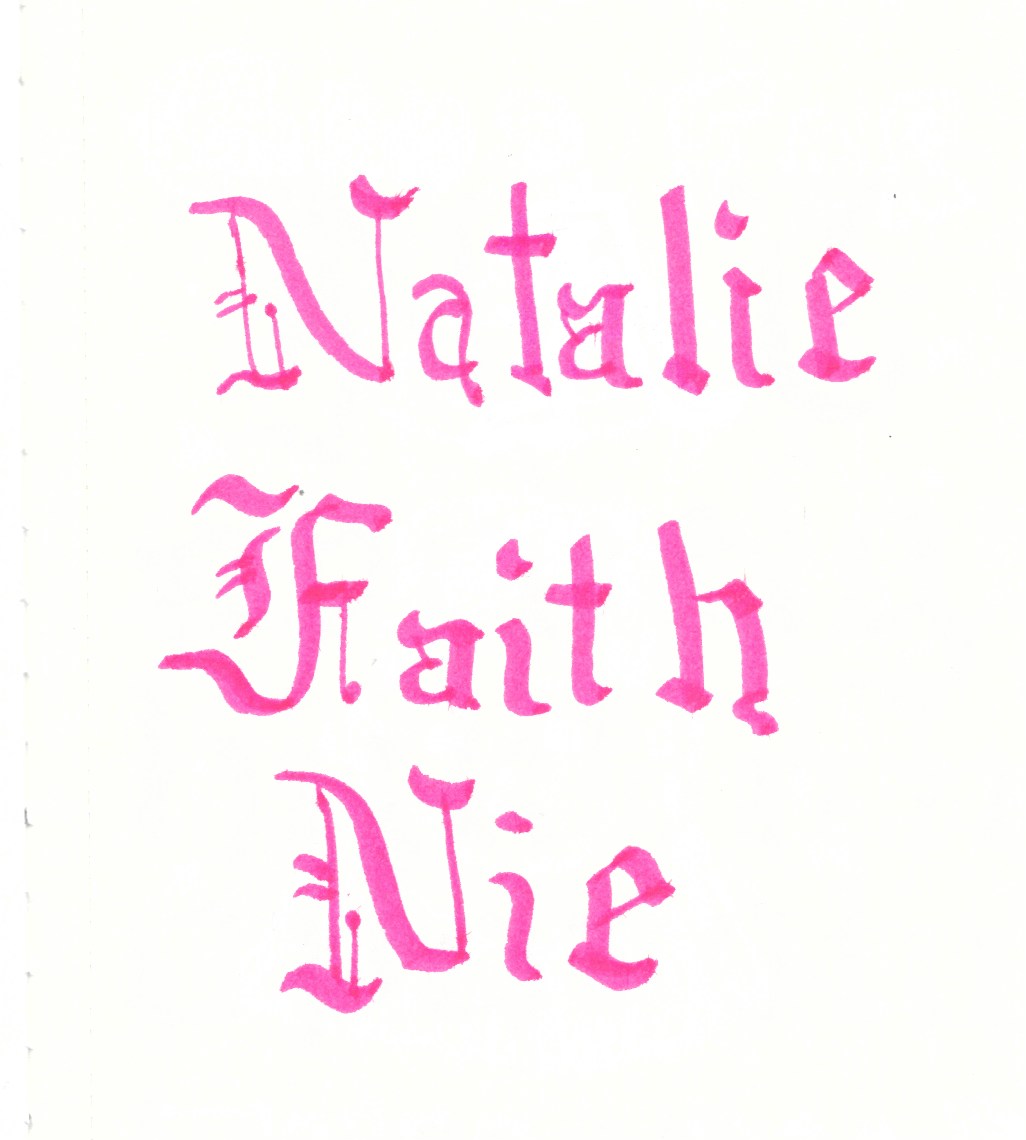 Natalie
Faith
Nie